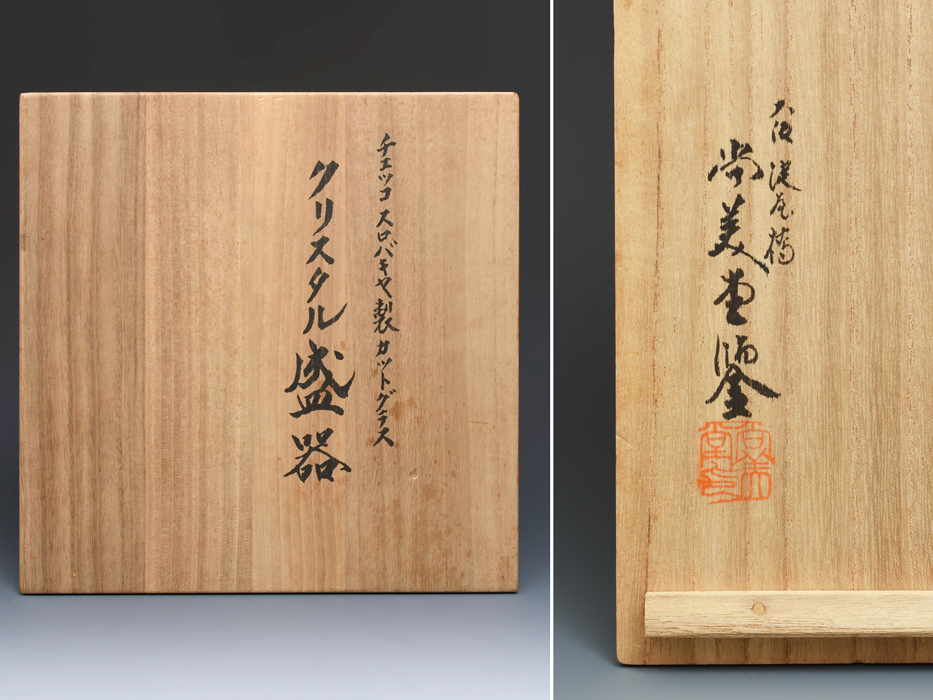 チェッコスロバキヤ製カットグラス
クリスタル盛器
大阪淀屋橋
尚美堂鑒